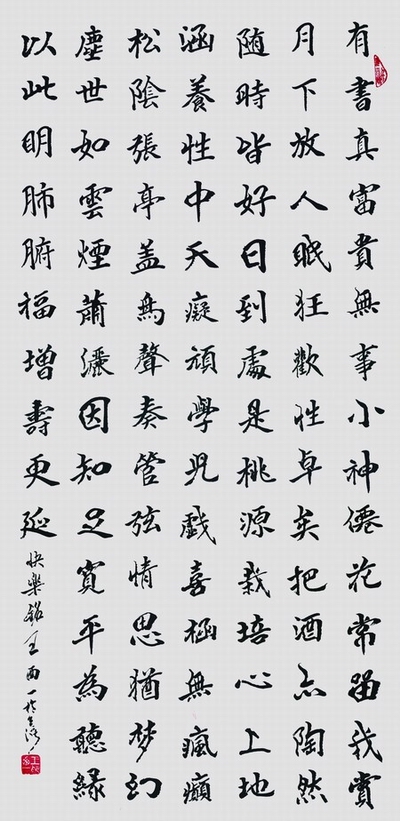 有書真富貴無事小神僊花常留我賞
月下放人眠狂歡性卓矣把酒亦陶然
随時皆好日到處是桃源栽培心上地
涵養性中天癡頑學兒戲喜極無瘋癲
松陰張亭盖鳥聲奏管弦情思猶梦幻
塵世如雲煙蕭灑因知足寬平為聽緣
以此明肺腑福增壽更延
快樂銘